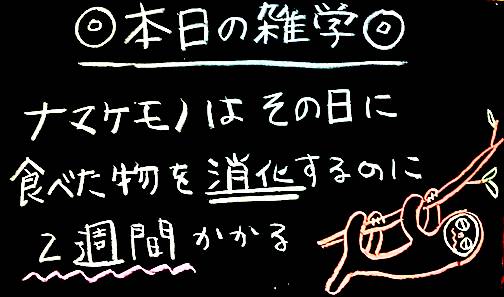 ◎本日の雑学◎
ナマケモノは その日に
食べた物を消化するのに
2週間かかる